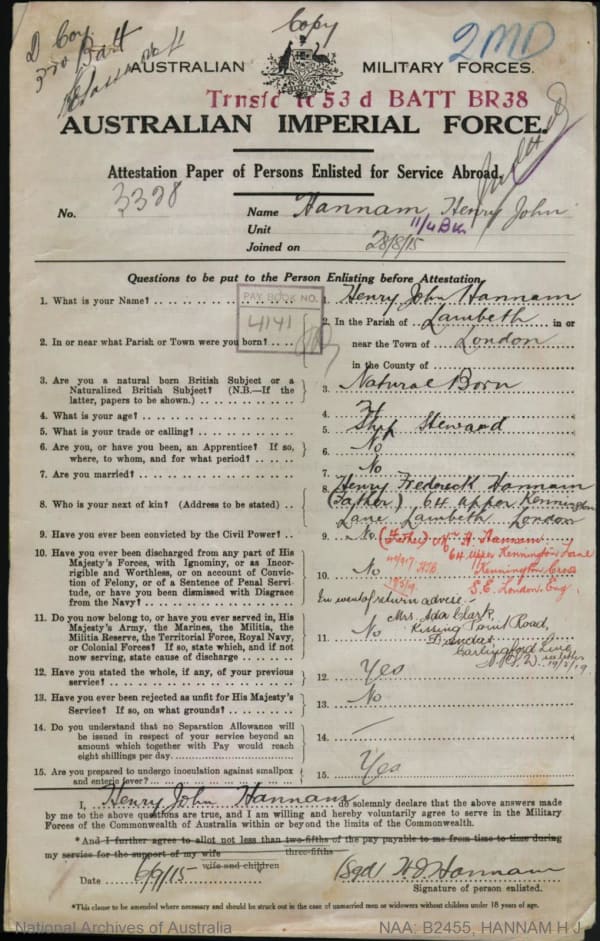 Copy
D Coy.
2MD
AUSTRALIAN MILITARY FORCES.
Trnsfd to 53 d BATT BR38
AUSTRALIAN IMPERIAL FORCE.
Attestation Paper of Persons Enlisted for Service Abroad.
No. 3328 Name Hannam, Henry John
Unit 11/4 Bn
Joined on 28/8/15
Questions to be put to the Person Enlisting before Attestation.
1. What is your Name? 1. Henry John Hannam
PAY BOOK NO.
4141
2. In or near what Parish or Town were you born? 2. In the Parish of Lambeth in or
near the Town of London
in the County of
3. Are you a natural born British Subject or a Naturalized British Subject? (N.B.—If the latter, papers to be shown.) 3. Natural Born
4. What is your age? 4.
5. What is your trade or calling? 5. Ship Steward
6. Are you, or have you been, an Apprentice? If so, where, to whom, and for what period? 6. No
7. Are you married? 7. No
8. Who is your next of kin? (Address to be stated) 8. Henry Frederick Hannam
(Father) 64 upper Kennington
Lane Lambeth London
9. Have you ever been convicted by the Civil Power? 9. No
(Father) Mr H. Hannam
64 Upper Kennington Lane
Kennington Cross
S.E. London. Eng.
10. Have you ever been discharged from any part of His Majesty's Forces, with Ignominy, or as Incorrigible and Worthless, or on account of Conviction of Felony, or of a Sentence of Penal Servitude, or have you been Dismissed with Disgrace from the Navy? 10. No
In event of return advise:-
Mrs. Ada Clark
Kissing Point Road,
Dundas
Carlingford Line
11. Do you now belong to, or have you ever served in, His Majesty's Army, the Marines, the Militia, the Militia Reserve, the Territorial Force, Royal Navy, or Colonial Forces? If so, state which, and if not now serving, state cause of discharge 11. No
12. Have you stated the whole, if any, of your previous service? 12. Yes
13. Have you ever been rejected as unfit for His Majesty's Service? If so, on what grounds? 13. No
14. Do you understand that no Separation Allowance will be issued in respect of your service beyond an amount which together with Pay would reach eight shillings per day. 14. —
15. Are you prepared to undergo inoculation against smallpox and enteric fever? 15. Yes
I, Henry John Hannam do solemnly declare that the above answers made
by me to the above questions are true, and I am willing and hereby voluntarily agree to serve in the Military
Forces of the Commonwealth of Australia within or beyond the limits of the Commonwealth.
*And I further agree to allot not less than two-fifths of the pay payable to me from time to time during
three-fifths
my service for the support of my wife
wife and children
Date 6/9/15 (Sgd) H.J. Hannam
Signature of person enlisted.
*This clause to be amended where necessary and should be struck out in the case of unmarried men or widowers without children under 18 years of age.
National Archives of Australia NAA: B2455, HANNAM H J